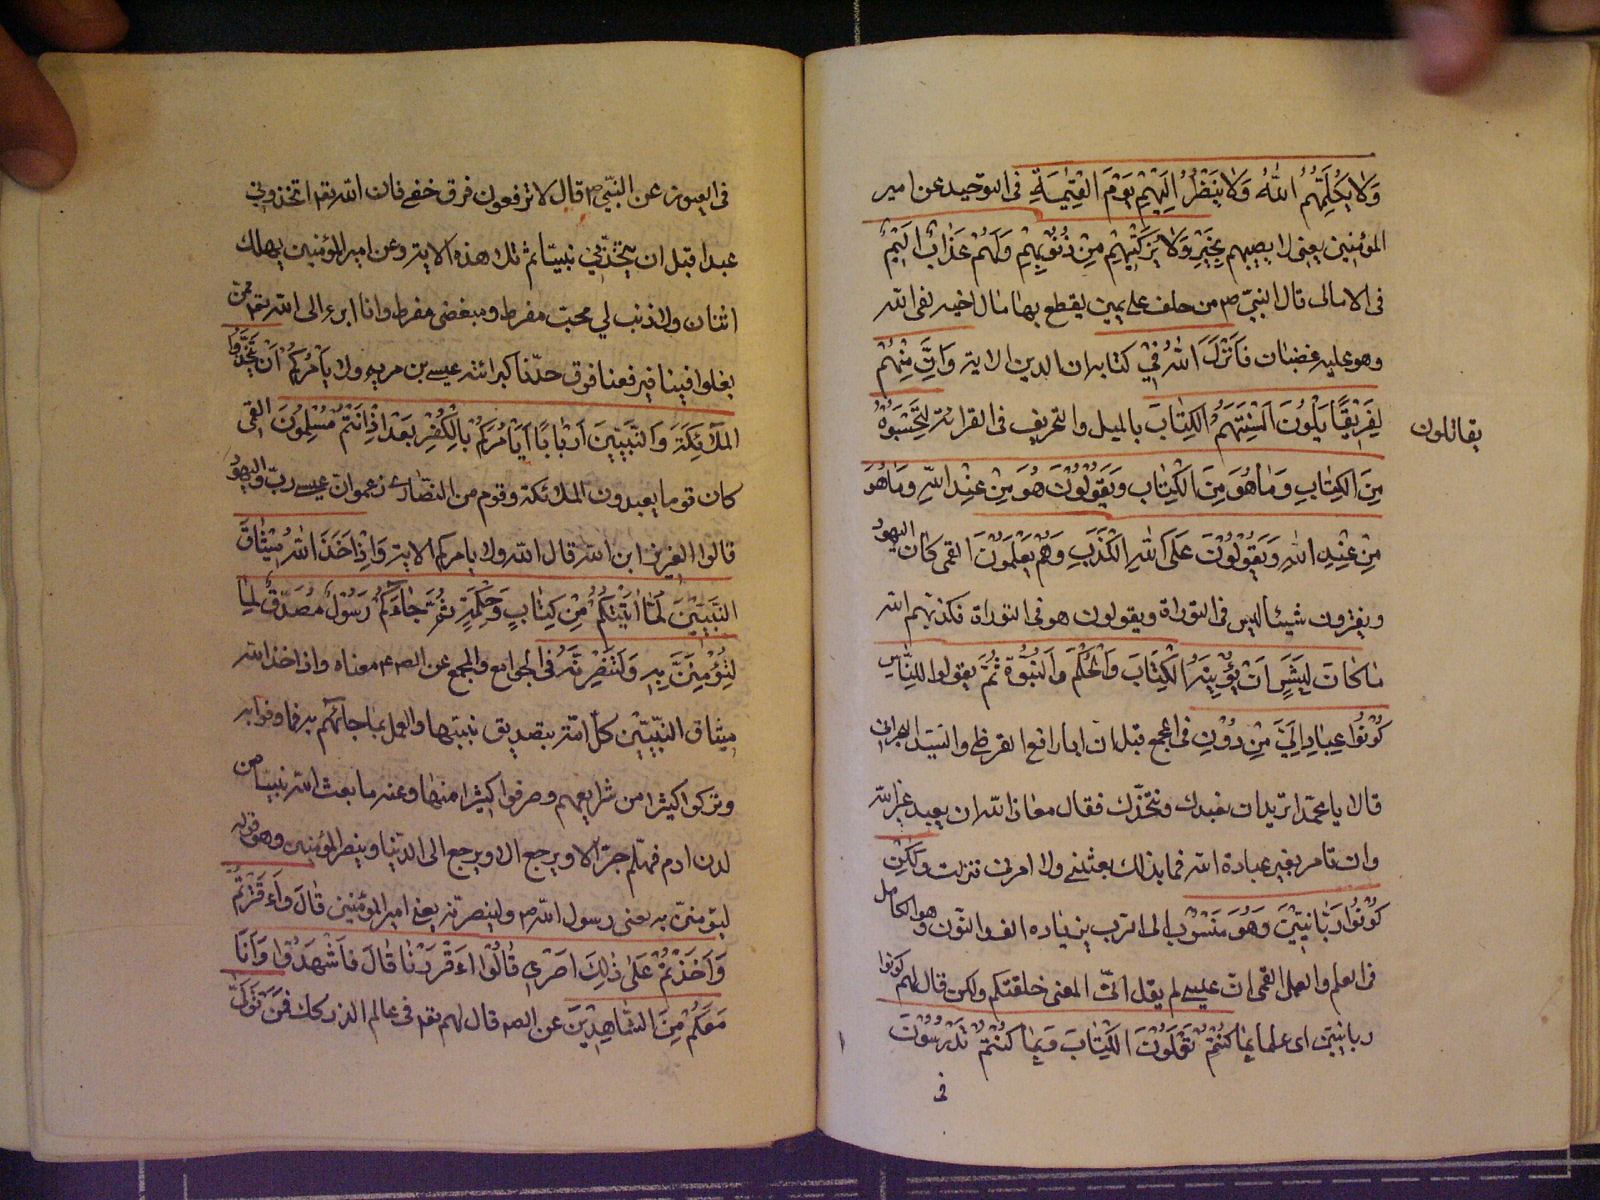 وَلَا يُكَلِّمُهُمُ اللهُ وَلَا يَنْظُرُ اِلَيْهِمْ يَوْمَ الْقِيٰمَةِ فى التوحيد عن امير
المؤمنين يعنى لا يصيبهم بخير وَلَا يُزَكِّيْهِمْ مِنْ ذُنُوْبِهِمْ وَلَهُمْ عَذَابٌ اَلِيْمٌ
فى الامالى قال النبىّ ص من حلف على يمين يقطع بها مال اخيه لقى الله
وهو عليه غضبان فَاَنْزَلَ اللهُ فِيْ كتابه ان الذين الاية وَاِنَّ مِنْهُمْ
لَفَرِيْقًا يَلْوُنَ اَلْسِنَتَهُمْ الْكِتَابَ بالميل والتحريف فى القرائة لِتَحْسَبُوْهُ
يقاتلون
مِنَ الْكِتَابِ وَمَا هُوَ مِنَ الْكِتَابِ وَيَقُوْلُوْنَ هُوَ مِنْ عِنْدِ اللهِ وَمَا هُوَ
مِنْ عِنْدِ اللهِ وَيَقُوْلُوْنَ عَلَى اللهِ الْكَذِبَ وَهُمْ يَعْلَمُوْنَ القمى كان اليهود
ويقرؤن شيئا ليس فى التوراة ويقولون هو فى التوراة فكذبهم الله
مَا كَانَ لِبَشَرٍ اَنْ يُؤْتِيَهُ الْكِتَابَ وَالْحُكْمَ وَالنُّبُوَّةَ ثُمَّ يقولوا للنَّاسِ
كُوْنُوْا عِبَادًا لِيْ مِنْ دُوْنِ فى المجمع قيل ان ابا رافع القرظى والسيد النجرانى
قالا يا محمد اتريد ان نعبدك ونتخذك فقال معاذ الله ان يعبد غير الله
وان نامر بغير عبادة الله فما بذلك بعثنى ولا امرنى فنزلت وَلٰكِنْ
كُوْنُوْا رَبَّانِيِّيْنَ وَهُوَ مَنْسُوْبٌ الى الرب بزياده الف والنون وهو الكامل
فى العلم والعمل القمى ان عيسى لم يقل انّى المعنى خلقتكم ولكن قال لهم كونوا
ربانيين اى علما بِمَا كُنْتُمْ تَعْلَمُوْنَ الْكِتَابَ وَبِمَا كُنْتُمْ تَدْرُسُوْنَ
فى
فى العيون عن النبىّ ص قال لا ترفعون فوق حقى فان الله تعه اتخذنى
عبدا قبل ان يتخذنى نبيتا ثم تلا هذه الاية وعن امير المؤمنين يهلك
اثنان ولا ذنب لى محبّ مفرط ومبغض مفرط وانا ابرء الى الله تعه ممن
يغلوا فينا فيرفعنا فوق حدّنا كبرائة عيسى بن مريم ولا يَأْمُرَكُمْ اَنْ تَتَّخِذُوا
الْمَلَائِكَةَ وَالنَّبِيِّيْنَ اَرْبَابًا اَيَأْمُرُكُمْ بِالْكُفْرِ بَعْدَ اِذْ اَنْتُمْ مُسْلِمُوْنَ القمى
كان قوما يعبدون الملائكة وقوم من النصارى زعموان عيسى ربّ واليهود
قالوا العزيز ابن الله قال الله ولا يامركم الاية وَاِذْ اَخَذَ اللهُ مِيْثَاقَ
النَّبِيِّيْنَ لَمَا اٰتَيْتُكُمْ مِنْ كِتَابٍ وَحِكْمَةٍ ثُمَّ جَاءَكُمْ رَسُوْلٌ مُصَدِّقٌ لِمَا
لَتُؤْمِنُنَّ بِهِ وَلَتَنْصُرُنَّهُ فى الجوامع والمجمع عن الصم معناه واذ اخذ الله
ميثاق النبيّيْن كلّ امّة بتصديق نبيتها والعمل بما جائهم به فما وفوا به
وتركوا كثيرا من شرايعهم وحرفوا كثيرا منها وعنه ما بعث الله نبينا من
لدن ادم فهلم جرا الا ويرجع الى الدنيا وينصر المؤمنين وهو قوله
ليؤمننّ به يعنى رسول الله ص ولينصرنه يعنى امير المؤمنين قَالَ ءَاَقْرَرْتُمْ
وَاَخَذْتُمْ عَلٰى ذٰلِكَ اِصْرِي قَالُوْا اَءقْرَرْنَا قَالَ فَاشْهَدُوْا وَاَنَا
مَعَكُمْ مِنَ الشَّاهِدِيْنَ عن الصم قال لهم تعه فى عالم الذر فَمَنْ تَوَلّٰى